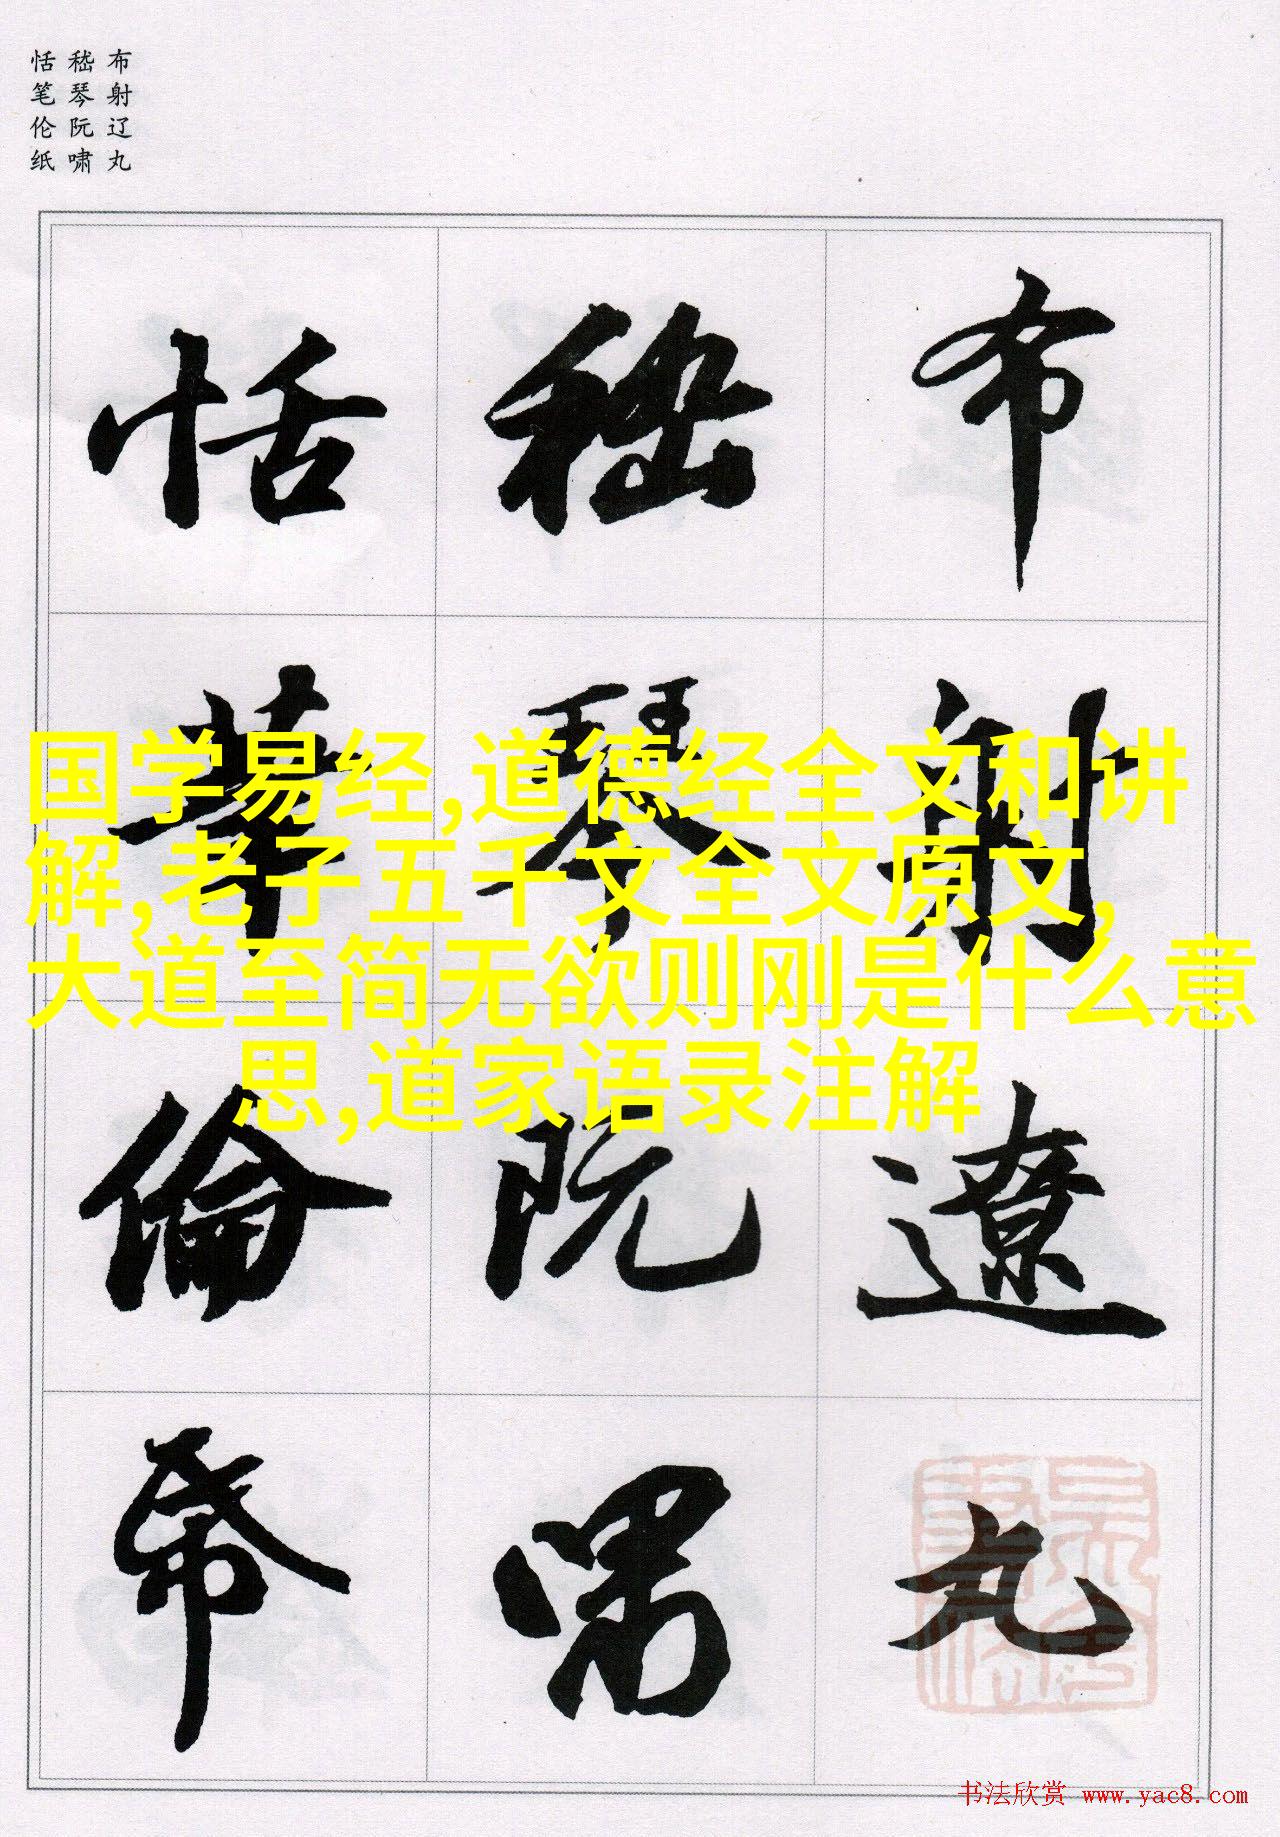 布射辽丸
嵇琴阮啸
恬笔伦纸
布射遼丸
嵇琴阮嘯
恬筆倫帋
国学易经,道德经全文和讲
解,老子五千文全文原文,
大道至简无欲则刚是什么意
思,道家语录注解
书法欣赏 www.yac8.com